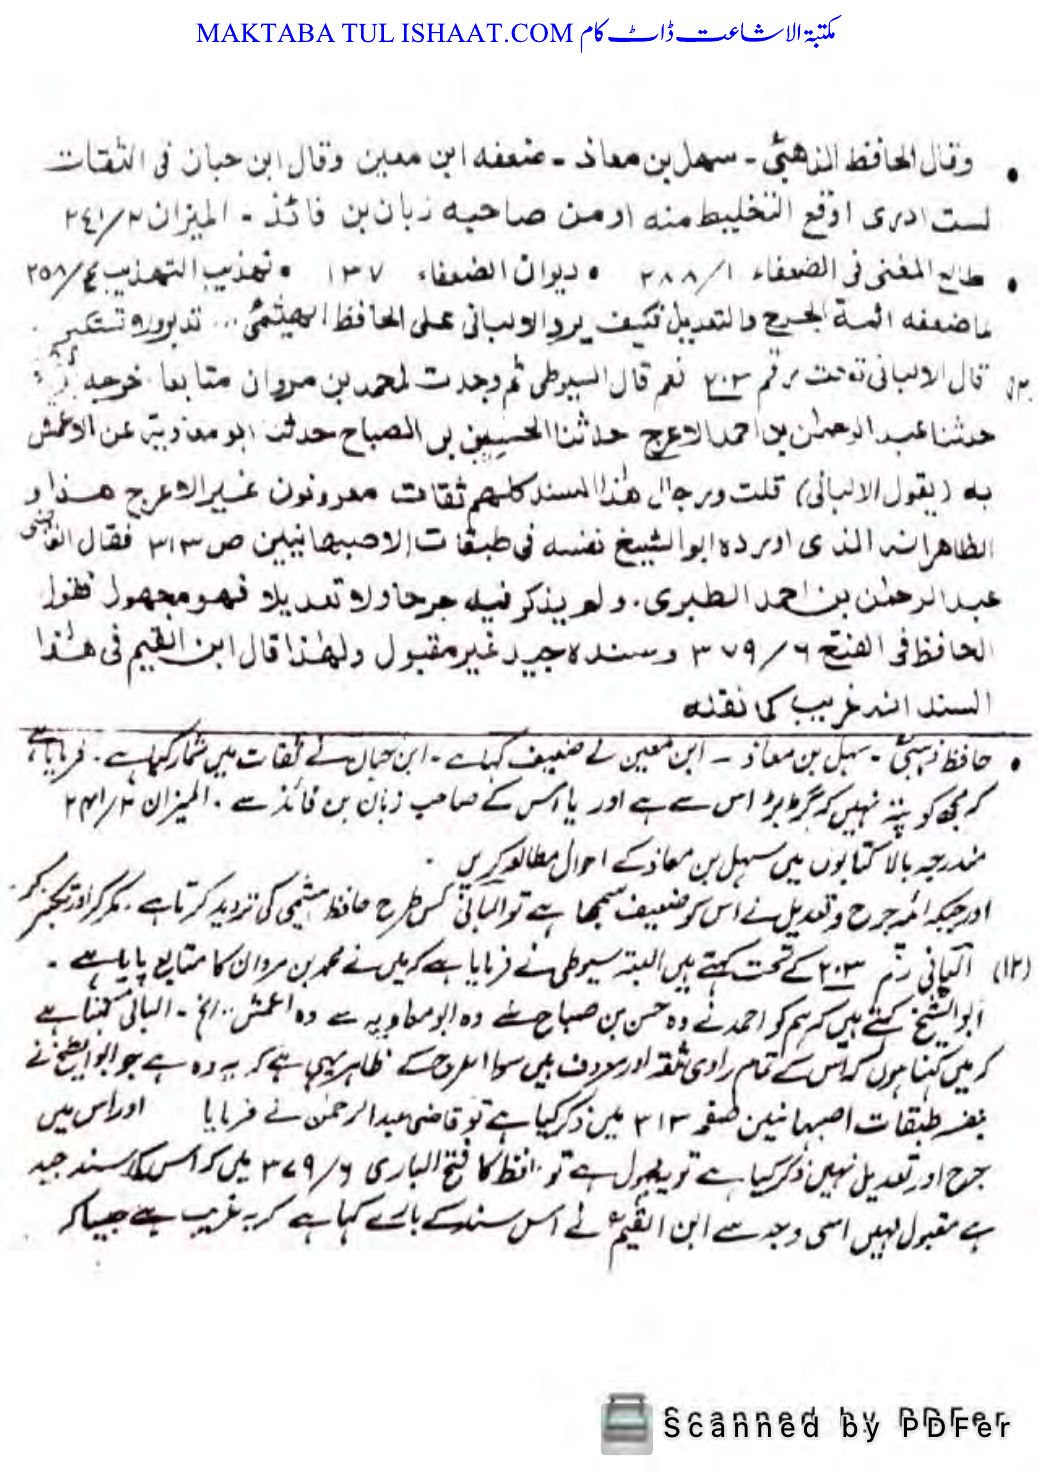 MAKTABA TUL ISHAAT.COM مکتبۃ الاشاعت ڈاٹ کام
• وقال الحافظ الذهبیؒ ـ سهل بن معاذ ـ ضعفه ابن معین وقال ابن حبان فی الثقات
لست ادری اوقع التخلیط منه او من صاحبه زبان بن فائذ ـ المیزان ۲/۲٤۱
• طالع المغنی فی الضعفاء ۱/۲۸۸ • دیوان الضعفاء ۱۳۷ • تهذیب التهذیب ٤/۲۵۸
لما ضعفه ائمة الجرح والتعدیل فکیف یرد الالبانی علی الحافظ الهیثمیؒ... تدبر ولا تستکبر
قال الالبانی تحت رقم ۲۰۳ نعم قال السیوطی ثم وجدت لمحمد بن مروان متابعا خرجه
حدثنا عبد الرحمٰن بن احمد الاعرج حدثنا الحسین بن الصباح حدثنا ابو معاویة عن الاعمش
به (یقول الالبانی) قلت ورجال هٰذا السند کلهم ثقات معروفون غیر الاعرج هذا و
الظاهر انه الذی اورده ابو الشیخ نفسه فی طبقات الاصبهانیین ص ۳۱۳ فقال
عبد الرحمٰن بن احمد الطبری. ولم یذکر فیه جرحا ولا تعدیلا فهو مجهول فقول
الحافظ فی الفتح ۶/۳۷۹ وسنده جید غیر مقبول ولهٰذا قال ابن القیم فی هٰذا
السند انه غریب کما نقله
• حافظ ذہبیؒ ـ سہل بن معاذ ـ ابن معین نے ضعیف کہا ہے ـ ابن حبان نے ثقات میں شمار کیا ہے ـ فرمایا ہے
کہ مجھ کو پتہ نہیں کہ گڑبڑ اس سے ہے اور یا اس کے صاحب زبان بن فائذ سے ـ المیزان ۲/۲۴۱
مندرجہ بالا کتابوں میں سہل بن معاذ کے احوال مطالعہ کریں ـ
اور جبکہ ائمہ جرح و تعدیل نے اس کو ضعیف سمجھا ہے تو البانی کس طرح حافظ ہیثمی کی تردید کرتا ہے ـ
(۱۲) البانی رقم ۲۰۳ کے تحت کہتے ہیں البتہ سیوطی نے فرمایا ہے کہ میں نے محمد بن مروان کا متابع پایا ہے ـ
ابوالشیخ کہتے ہیں کہ ہم کو احمد نے وہ حسن بن صباح سے وہ ابو معاویہ سے وہ اعمش .. الخ ـ البانی کہتا ہے
کہ میں کہتا ہوں کہ اس کے تمام راوی ثقہ اور معروف ہیں سوا اعرج کے ظاہر یہی ہے کہ یہ وہ ہے جو ابوالشیخ نے
طبقات اصبہانیین صفحہ ۳۱۳ میں ذکر کیا ہے تو قاضی عبدالرحمٰن نے فرمایا اور اس میں
جرح اور تعدیل نہیں ذکر کیا ہے تو یہ مجہول ہے تو حافظ کا فتح الباری ۶/۳۷۹ میں کہ اس کا سند جید
ہے مقبول نہیں اسی وجہ سے ابن القیمؒ نے اس سند کے بارے کہا ہے کہ یہ غریب ہے جیسا کہ
Scanned by PDFer